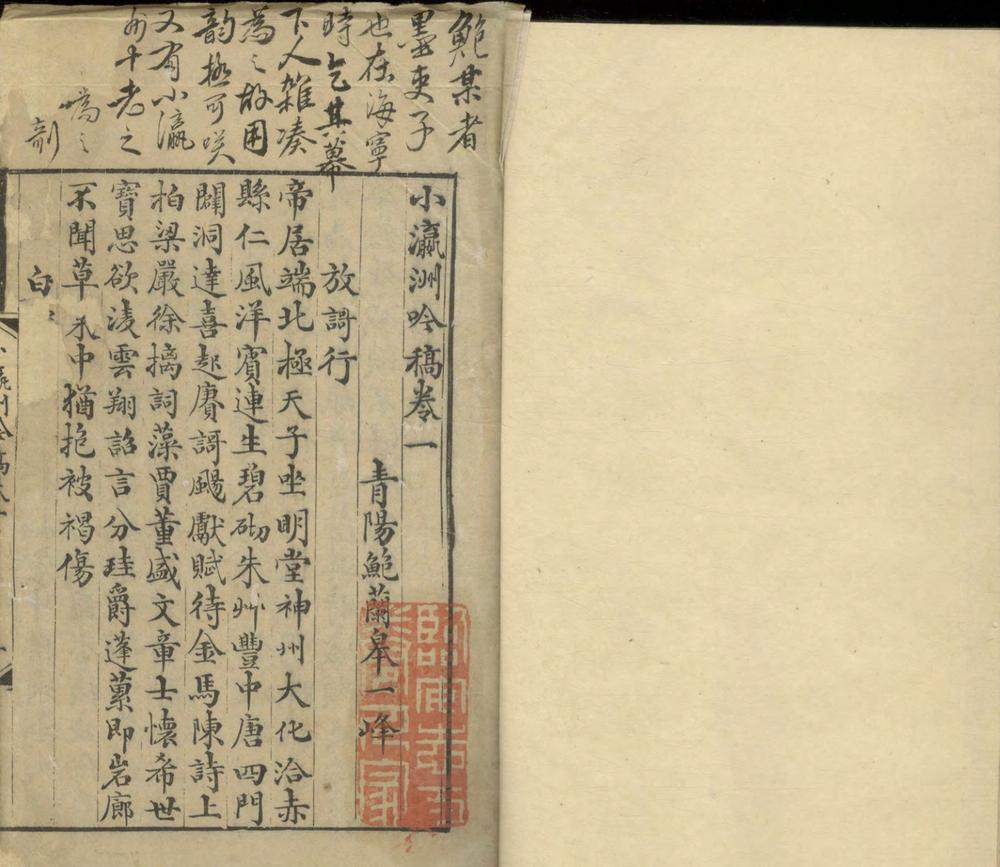 鮑某者
墨吏子
也在海寧
時乞其幕
下人雜凑
為之故用
韵極可咲
又有小瀛
州十老之
嘴之
刻
小瀛洲吟稿卷一
青陽鮑蘭皋一峰
放謌行
帝居端北極天子坐明堂神州大化洽赤
縣仁風洋賓連生碧砌朱艸豐中唐四門
闢洞達喜起賡謌颺獻賦待金馬陳詩上
柏梁嚴徐摛詞藻賈董盛文章士懷希世
寶思欲淩雲翔詔言分珪爵蓬蓽即岩廊
不聞草中猶抱被褐傷
白